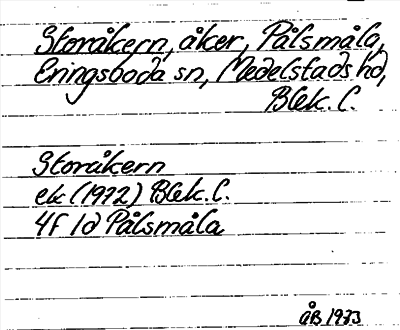 Storåkern, åker, Pålsmåla,
Eringsboda sn, Medelstads hd,
Blek. l.
Storåkern
ek (1972) Blek. l.
4F 1d Pålsmåla
ÅB 1973